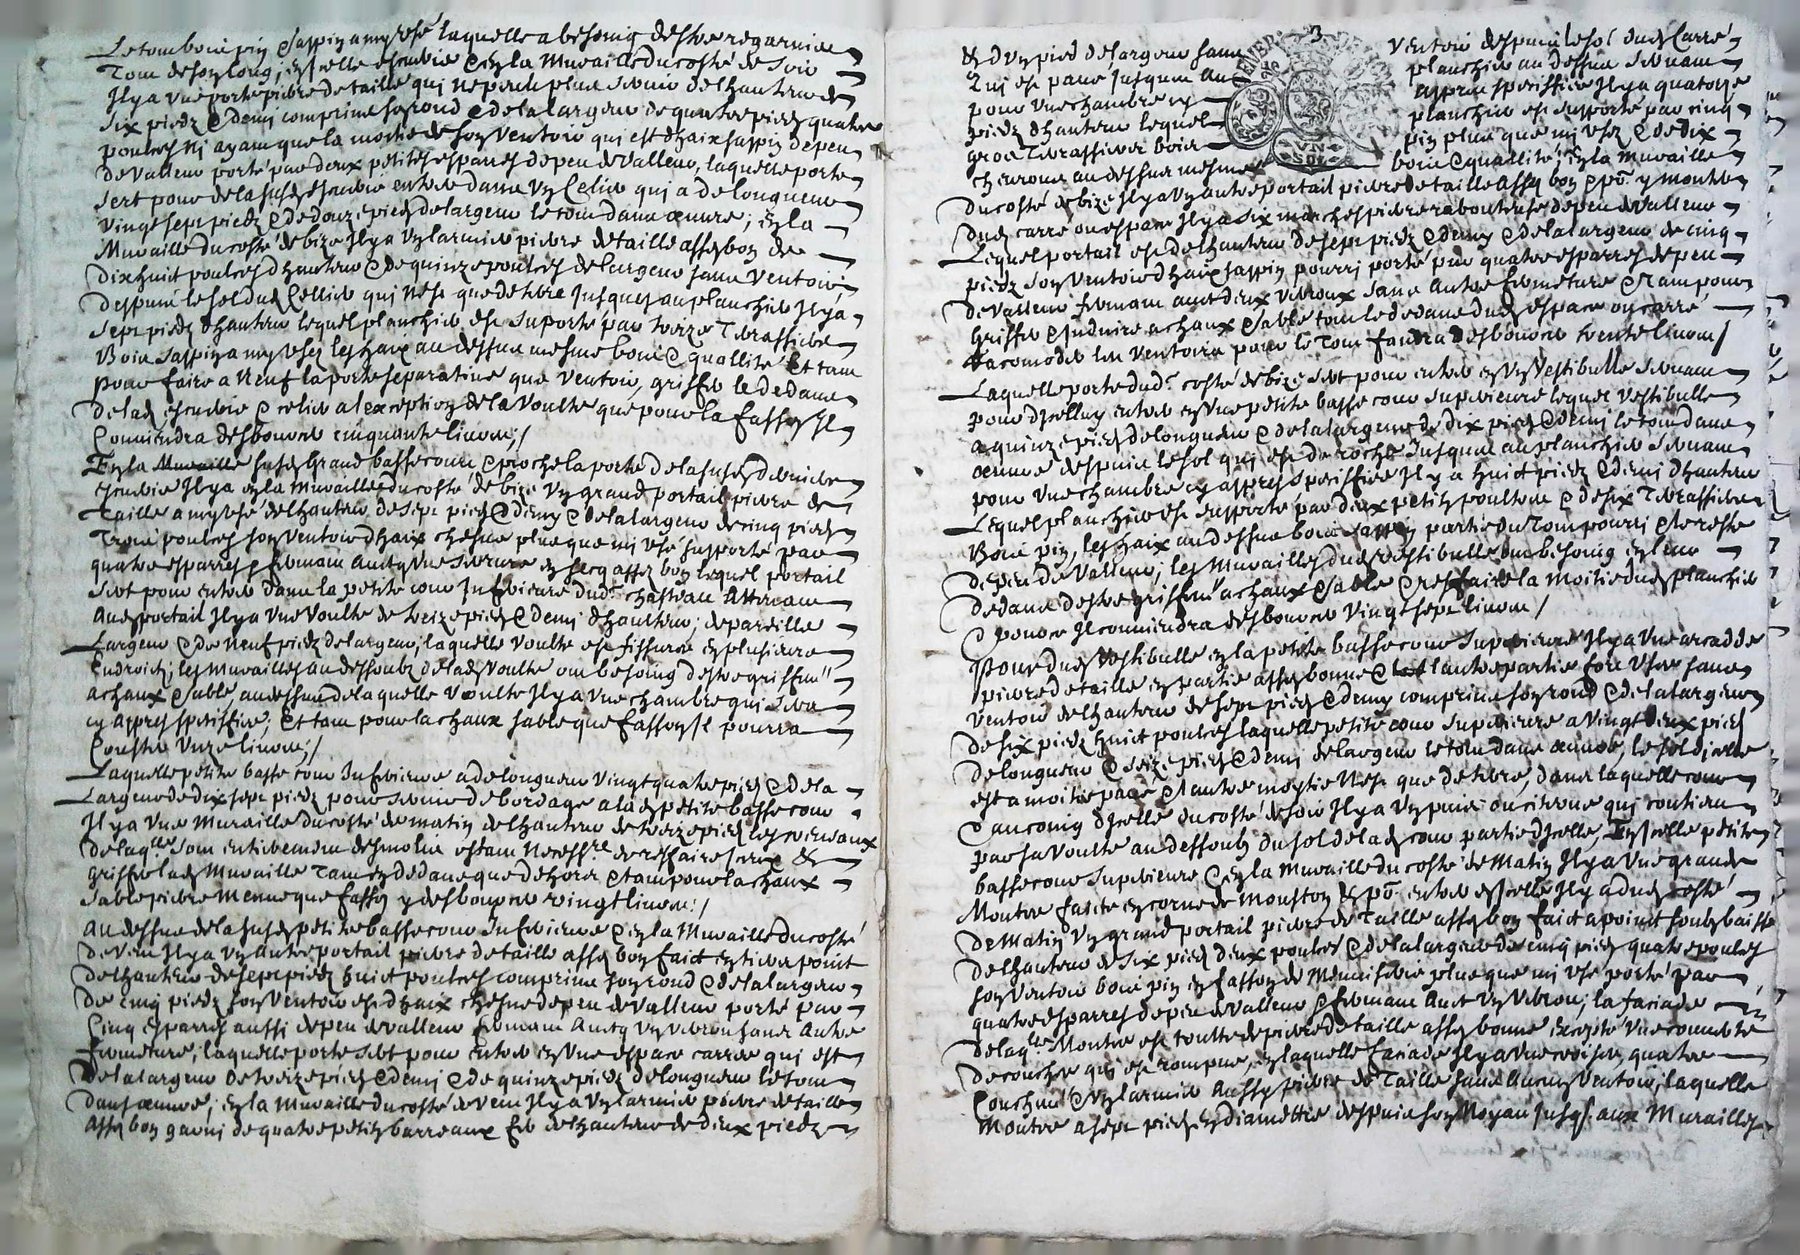 Le tout bois pin Sappin amy usé laquelle a besoing destre regarnie
Tout de son long, en icelle escuirie & en la Muraille du costé de soir
Il y a une porte pierre de taille qui ne prend plus de hauteur de
six piedz & demi comprins son rond & de la largeur de quatre piedz quatre
poulces ni ayant que la moitié de son ventoir qui est d'haix sappin de peu
de valleur porté par deux petites esparres de peu de valleur, laquelle porte
sert pour de la susd escuirie entrer dans un Celier qui a de longueur
vingt sept piedz & de douze piedz de largeur le tout dans œuvre; En la
Muraille du costé de bize Il y a un larmier pierre de taille assez bon de
dix huict poulces d'hauteur & de quinze poulces de largeur sans ventoir
Despuis le sol dud Cellier qui n'est que de terre Jusques au planchier Il y a
sept piedz d'hauteur lequel planchier est suporté par treize Traffiches
Bois sappin amy usez les haix au dessus mesme bois & quallité Et tant
pour faire a neuf la porte separative que ventoir, griffer le dedans
de lad escuirie & celier a l'exception de la voulte que pour la fasson Il
Conviendra desbourcer cinquante livres;/
En la Muraille susd Grand bassecour & proche la porte de la susd derniere
escuirie Il y a en la Muraille du costé de bize un grand portail pierre de
Taille amy usé de l'hauteur de sept piedz & demy & de la largeur de cinq piedz
Trois poulces son ventoir d'haix chesne plus que mi usé supporté par
quatre esparres fermant avecq une serrure en seq assez bon lequel portail
sert pour entrer dans la petite cour Inferieure dud: chasteau Attenant
Aud portail Il y a une voulte de treize piedz & demi d'hauteur; de pareille
Largeur & de neuf piedz de largeur, laquelle voulte est fissurée en plusieurs
Endroictz; les Murailles au dessoubz de lad voulte ont besoing destre griffées
a chaux & sable, au dessus de laquelle voulte Il y a une chambre qui sera
cy apprez speciffiée; Et tant pour la chaux sable que fasson Il pourra
Couster unze livres;/
Laquelle petite basse cour Inferieure a de longueur vingt quatre piedz & de la
Largeur de dix sept piedz pour servir de bordage a lad petite basse cour
Il y a une Muraille du costé de matin de l'hauteur de treize piedz les creneaux
de laq.lle sont entierement desmolis estant necess.re de reffaire iceux &
griffer lad Muraille Tant en dedans que dehors & tant pour la chaux
sable pierre Menue que fasson y desbourcer vingt livres:/
Au dessus de la susd petite basse cour Inferieure & en la Muraille du costé
de vent Il y a un Autre portail pierre de taille assez bon faict en tiers point
de l'hauteur de sept piedz huict poulces comprins son rond & de la largeur
de cinq piedz son ventoir est d'haix chesne de peu de valleur porté par
Cinq esparres aussi de peu de valleur fermant Avecq un verrouil sans Autre
fermeture, laquelle porte sert pour entrer en une espace carrée qui est
De la largeur de treize piedz & demi & de quinze piedz de longueur le tout
Dans œuvre; en la Muraille du costé de vent Il y a un larmier pierre de taille
Assez bon garni de quatre petitz barreaux fer de l'hauteur de deux piedz
3
& d'un pied de largeur sans ventoir despuis le sol dud Carré
Qui est pavé Jusques au planchier au dessus servant
pour une chambre cy apprez speciffiée Il y a quatorze
piedz d'hauteur lequel planchier est supporté par cinq
gros Traffiches bois pin plus que mi usez & de dix
chevrons au dessus mesme bois & quallité: En la Muraille
du costé de bize Il y a un autre portail pierre de taille assez bon & po.r y monter
dud carré ou espace Il y a six marches pierre raboteuse de peu de valleur
Lequel portail est de l'hauteur de sept piedz & demy & de la largeur de cinq
piedz son ventoir d'haix sappin pourri porté par quatre esparres de peu
de valleur fermant avec deux verroux sans autre fermeture & tant pour
Griffer & enduire a chaux & sable tout le dedans dud espace ou carré
& acomoder les ventoirs pour le Tout faudra desbourcer trente livres/
Laquelle porte dud: costé de bize sert pour entrer en un vestibulle servant
pour d'icelluy entrer en une petite basse cour superieure lequel vestibulle
a quinze piedz de longueur & de la largeur de dix piedz & demi le tout dans
œuvre despuis le sol qui est de roche Jusques au planchier servant
pour une chambre cy apprez speciffiée Il y a huict piedz & demi d'hauteur
Lequel planchier est supporté par deux petitz poultres & de six Traffiches
Bois pin, les haix au dessus bois sappin partie du Tout pourri & le reste
de peu de valleur; les Murailles dud vestibulle ont besoing en leur
dedans destre griffées a chaux & sable & reffaire la moitié dud planchier
& pour ce Il conviendra desbourcer vingt sept livres/
Pour dud vestibulle en la petite basse cour superieure Il y a une arcadde
pierre de taille en partie assez bonne & l'autre partie fort usée sans
ventoir de l'hauteur de sept piedz & demy comprins son rond & de la largeur
de six piedz huict poulces laquelle petite cour superieure a vingt deux piedz
de longueur & seize piedz & demi de largeur le tout dans œuvre, le sol d'icelle
est a moitié pavé & l'autre moytié n'est que de terre, dans laquelle cour
& au coing d'icelle du costé de soir Il y a un puis ou citerne qui contient
par sa voulte au dessoubz du sol de lad cour partie d'icelle, En icelle petite
basse cour superieure & en la Muraille du costé de Matin Il y a une grande
Montée faicte en corne de mouston & po.r entrer en icelle Il y a dud costé
de Matin un grand portail pierre de Taille assez bon faict a poinct soubz baissé
de l'hauteur de six piedz deux poulces & de la largeur de cinq piedz quatre poulces
son ventoir bois pin en fasson de Menuiserie plus que mi usé porté par
quatre esparres de peu de valleur & fermant avec un verrou; la faciade
de laq.lle Montée est toutte de pierre de taille assez bonne excepté une couverte
de couchée qui est rompue, en laquelle faciade Il y a une croisée quatre
Couchées & un larmier Aussy pierre de Taille sans Aucun ventoir; laquelle
Montée a sept piedz en diamettre despuis son Noyau Jusq.s aux Murailles